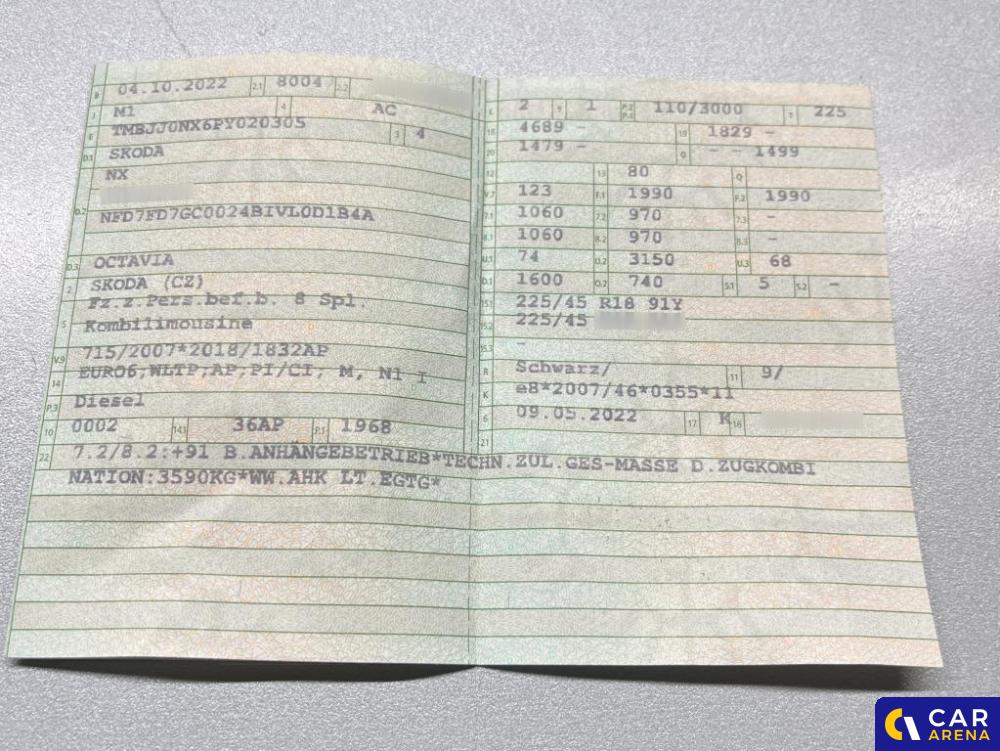 B 04.10.2022 2.1 8004 2.2
J M1 4 AC
E TMBJJ0NX6PY020305 3 4
D.1 SKODA
NX
D.2
NFD7FD7GC0024BIVL0D1B4A
D.3 OCTAVIA
2 SKODA (CZ)
Fz.z.Pers.bef.b. 8 Spl.
5 Kombilimousine
V.9 715/2007*2018/1832AP
14 EURO6;WLTP;AP;PI/CI; M, N1 I
P.3 Diesel
10 0002 14.1 36AP P.1 1968
L 2 9 1 P.2 P.4 110/3000 T 225
18 4689 - 19 1829 -
20 1479 - G - - 1499
12 13 80 Q
V.7 123 F.1 1990 F.2 1990
7.1 1060 7.2 970 7.3 -
8.1 1060 8.2 970 8.3 -
U.1 74 U.2 3150 U.3 68
O.1 1600 O.2 740 S.1 5 S.2 -
15.1 225/45 R18 91Y
15.2 225/45
15.3 -
R Schwarz/ 11 9/
K e8*2007/46*0355*11
6 09.05.2022 17 K 16
21
22 7.2/8.2:+91 B.ANHÄNGEBETRIEB*TECHN.ZUL.GES-MASSE D.ZUGKOMBI
NATION:3590KG*WW.AHK LT.EGTG*
CAR
ARENA